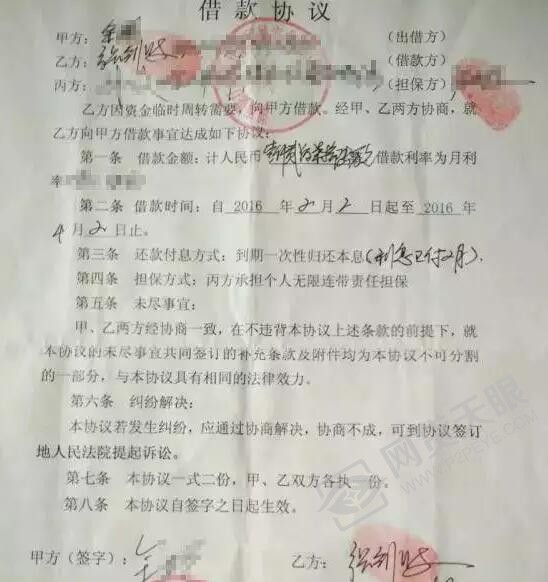 借款协议
甲方： （出借方）
乙方： （借款方）
丙方： （担保方）
乙方因资金临时周转需要，向甲方借款。经甲、乙两方协商，就
乙方向甲方借款事宜达成如下协议：
第一条 借款金额：计人民币 借款利率为月利
率
第二条 借款时间：自 2016 年2月2日起至 2016 年
4月2日止。
第三条 还款付息方式：到期一次性归还本息（利息已付2月）.
第四条 担保方式：丙方承担个人无限连带责任担保
第五条 未尽事宜：
甲、乙两方经协商一致，在不违背本协议上述条款的前提下，就
本协议的未尽事宜共同签订的补充条款及附件均为本协议不可分割
的一部分，与本协议具有相同的法律效力。
第六条 纠纷解决：
本协议若发生纠纷，应通过协商解决，协商不成，可到协议签订
地人民法院提起诉讼。
第七条 本协议一式二份，甲、乙双方各执一份。
第八条 本协议自签字之日起生效。
甲方（签字）： 乙方：
网贷天眼